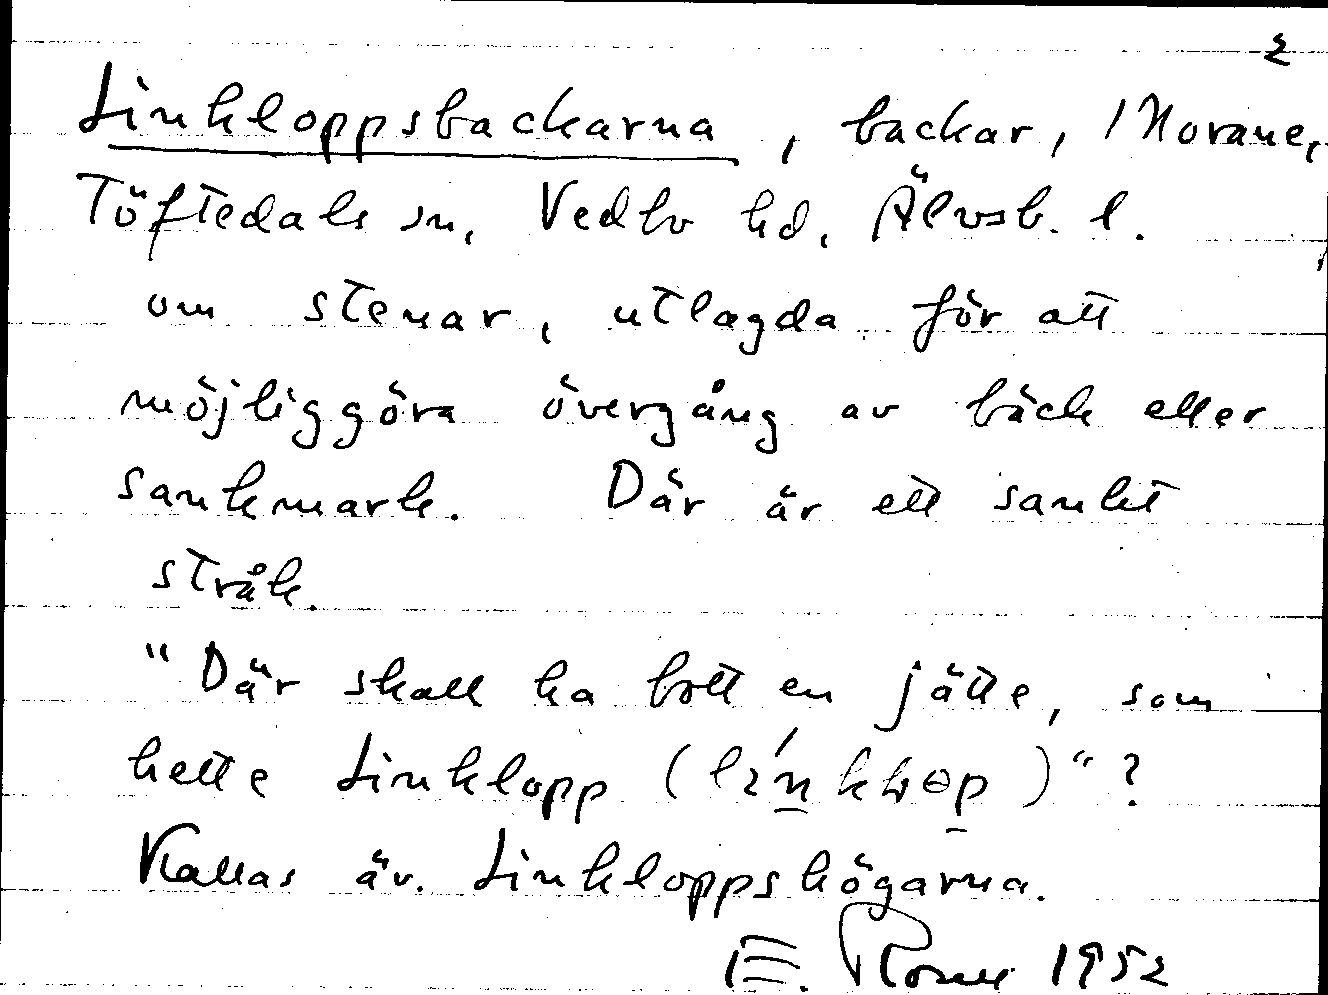 2
Linkloppsbackarna, backar, 1 Norane,
Töftedals sn, Vedbo hd, Älvsb. l.
om stenar, utlagda för att
möjliggöra övergång av bäck eller
sankmark. Där är ett sankt
stråk.
"Där skall ha bott en jätte, som
hette Linklopp ( )"?
Kallas äv. Linkloppshögarna.
E. 1952